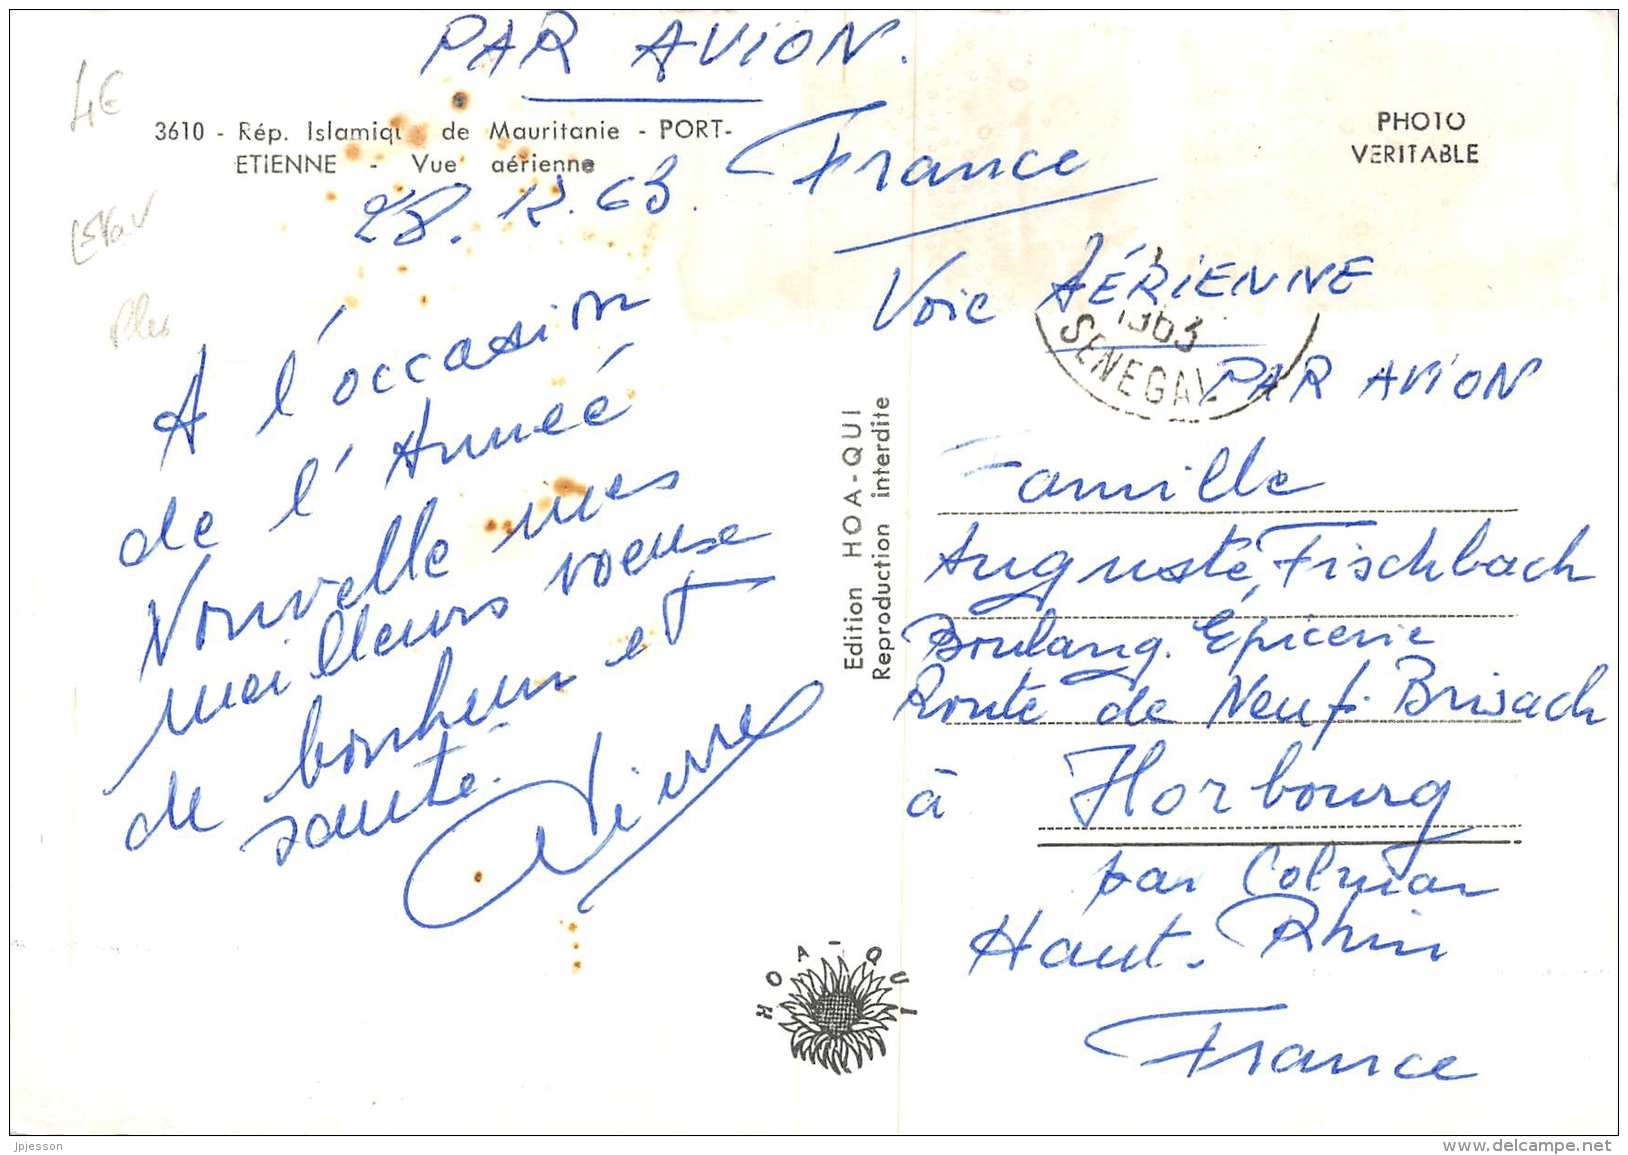 PAR AVION.
4€
3610 - Rép. Islamiq de Mauritanie - PORT-
ETIENNE - Vue aérienne
28. 12. 63.
A l'occasion
de l'Anneé
Nouvelle mes
meilleurs voeuse
de bonheur et
santé.
Pierre
PHOTO
VERITABLE
France
Voie AÉRIENNE
1963
SENEGAL
PAR AVION
Edition HOA-QUI
Reproduction interdite
Famille
Auguste, Fischbach
Boulang. Épicerie
Route de Neuf. Brisach
à Horbourg
par Colmar
Haut. Rhin
France
HOA-QUI
jpjesson
www.delcampe.net